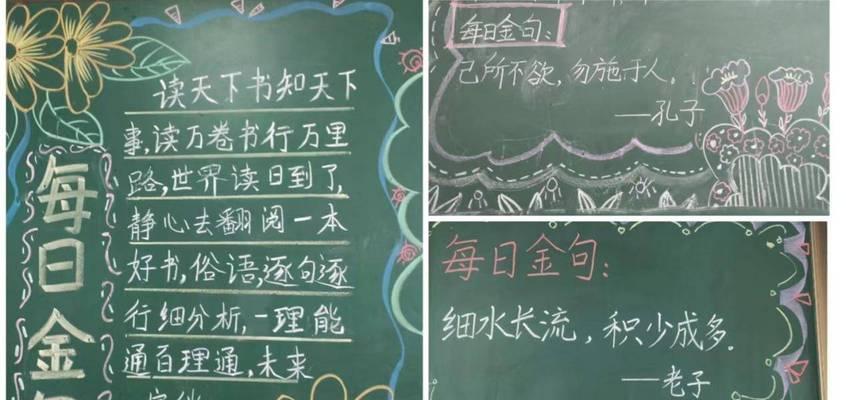 每日金
读天下书知天下
事,读万卷书行万里
路,世界读日到了,
静心去翻阅一本
好书,俗语,逐句逐
行细分析,一理能
通百理通,未来
每日金句:
己所不欲,勿施于人。
——孔子
每日金句:
细水长流,积少成多。
——老子